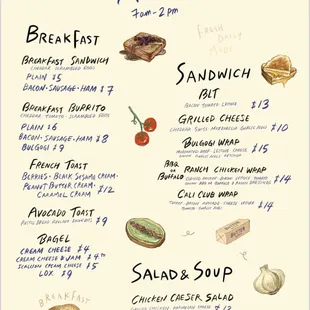 7am-2pm
BREAKFAST
BREAKFAST SANDWICH
CHEDDAR, SCRAMBLED EGGS
PLAIN $5
BACON·SAUSAGE·HAM $7
BREAKFAST BURRITO
CHEDDAR, TOMATO, SCRAMBLED EGGS
PLAIN $6
BACON·SAUSAGE·HAM $8
BULGOGI $9
FRENCH TOAST
BERRIES·BLACK SESAME CREAM·
PEANUT BUTTER CREAM·
CARAMEL CREAM $12
AVOCADO TOAST
$9
BAGEL
CREAM CHEESE $4
CREAM CHEESE & JAM $4.50
SCALLION CREAM CHEESE $5
LOX $9
BREAKFAST
FRESH
DAILY
MADE
SANDWICH
BLT
BACON TOMATO LETTUCE $13
GRILLED CHEESE
CHEDDAR SWISS MOZZARELLA GARLIC AIOLI $10
BULGOGI WRAP
MARINATED BEEF LETTUCE CHEESE $15
BBQ OR BUFFALO RANCH CHICKEN WRAP
$14
CALI CLUB WRAP
TURKEY, BACON, AVOCADO, CHEESE, ONION $14
SALAD & SOUP
CHICKEN CAESER SALAD
$13